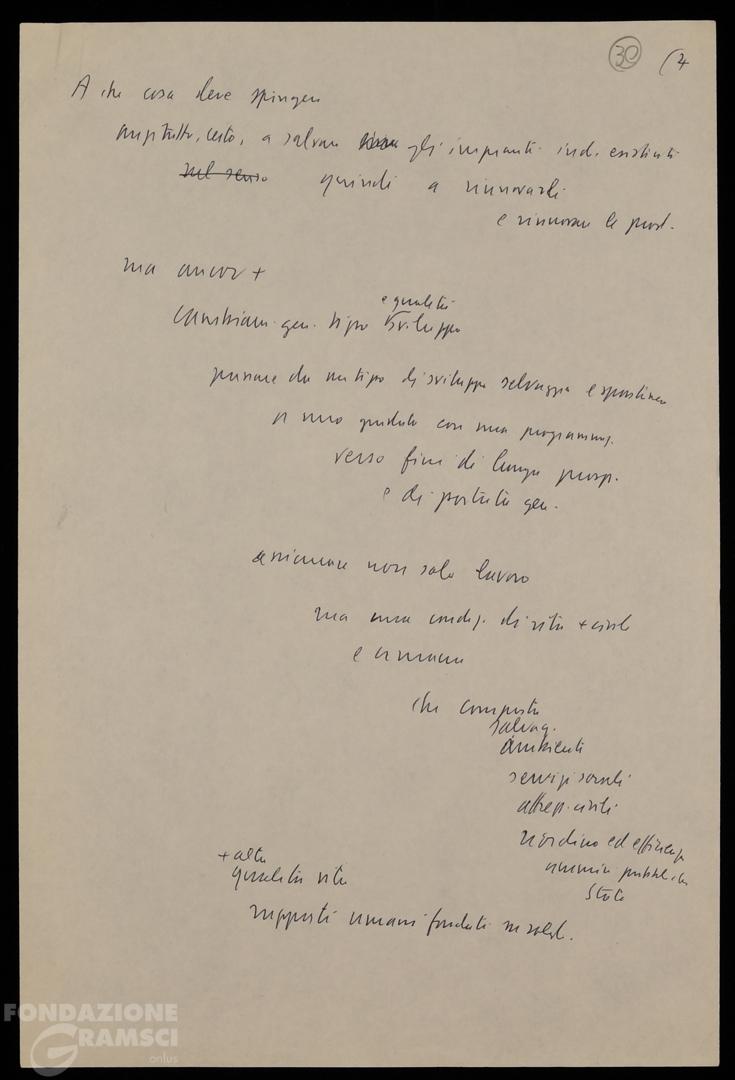 30 (4
A che cosa deve spingere
anzitutto, certo, a salvare gli impianti ind. esistenti
nel senso quindi a rinnovarli
e rinnovare le prod.
ma ancor +
cambiam. gen. tipo sviluppo
e qualità
passare da un tipo di sviluppo selvaggio e spontaneo
a uno guidato con una programmaz.
verso fini di lungo prosp.
e di portata gen.
assicurare non solo lavoro
ma una condiz. di vita + civile
e umana
che comporta
salvag.
ambiente
servizi sociali
attrezz. civili
riordino ed efficienza
ammin. pubblica
Stato
+ alta
qualità vita
rapporti umani fondati su solid.
FONDAZIONE
GRAMSCI
onlus